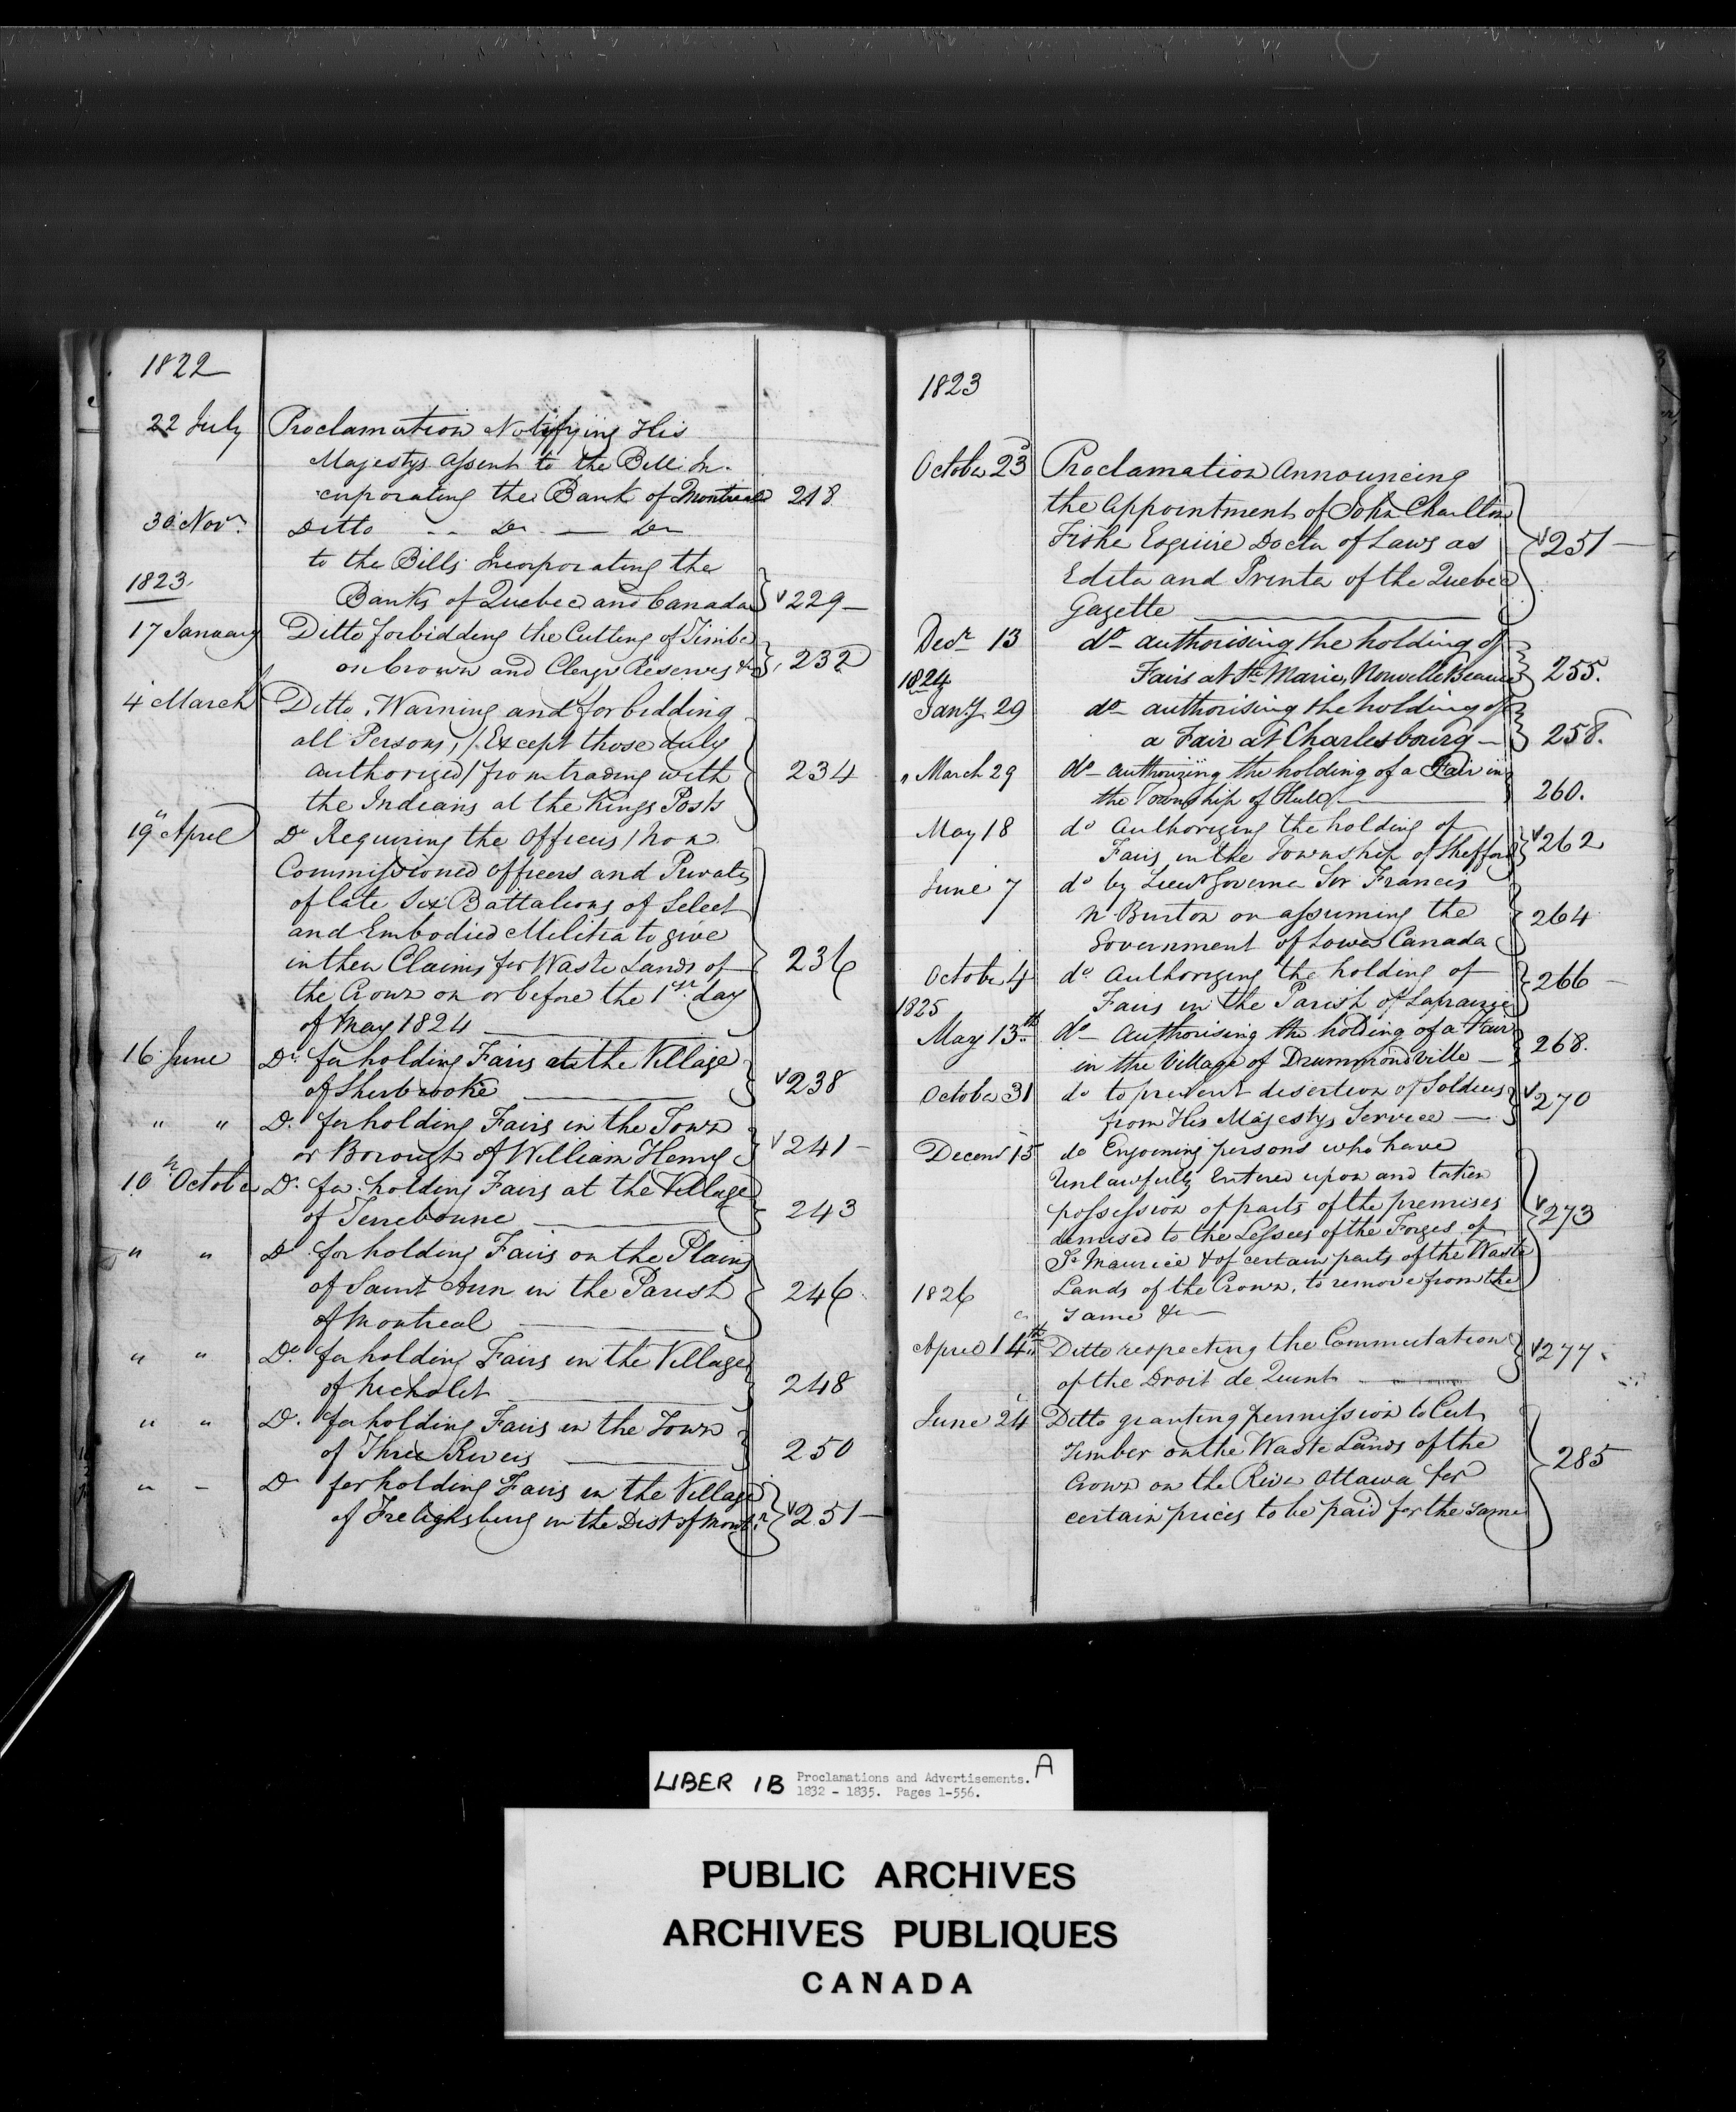 1822
22 July Proclamation Notifying His
Majestys assent to the Bill In-
corporating the Bank of Montreal 218
30 Novr. Ditto -- Do — Do
to the Bills Incorporating the
1823
Banks of Quebec and Canada 229
17 January Ditto forbidding the Cutting of Timber
on Crown and Clergy Reserves &c 232
4 March Ditto, Warning and forbidding
all Persons, /Except those duly
authorized/ from trading with 234
the Indians at the Kings Posts
19th April Do Requiring the Officers / Non
Commissioned officers and Privates
of late Six Battalions of Select
and Embodied Militia to give
in their Claims for Waste Lands of 236
the Crown on or before the 1st day
of May 1824
16 June Do. for holding Fairs at the Village
of Sherbrooke 238
" " Do. for holding Fairs in the Town
or Borough of William Henry 241
10th October Do. for holding Fairs at the Village
of Terrebonne 243
" " Do for holding Fairs on the Plains
of Saint Ann in the Parish 246
of Montreal
" " Do. for holding Fairs in the Village
of Nicholet 248
" " Do. for holding Fairs in the Town
of Three Rivers 250
" - Do for holding Fairs in the Village
of Freligksburg in the Dist of Montl. 251
1823
October 23 Proclamation Announcing
the appointment of John Charlton
Fishe Esquire Doctor of Laws as 251
Editor and Printer of the Quebec
Gazette
Decr 13 do authorising the holding of
1824
Fairs at Ste Marie, Nouvelle Beauce 255.
Jany. 29 do authorising the holding of
a Fair at Charlesbourg 258.
" March 29 do authorizing the holding of a Fair in
the Township of Hull 260.
May 18 do Authorizing the holding of
Fairs in the Township of Shefford 262
June 7 do by Lieut Governor Sir Francis
N. Burton on assuming the 264
Government of Lower Canada
October 4 do Authorizing the holding of
1825
Fairs in the Parish of Laprairie 266
May 13th do Authorising the holding of a Fair
in the Village of Drummondville 268.
October 31 do to prevent desertion of Soldiers 270
from His Majestys Service
Decemr 15 do Enjoining persons who have
Unlawfully Entered upon and taken
possession of parts of the premises 273
demised to the Lessees of the Forges of
St Maurice & of certain parts of the Waste
1826
Lands of the Crown, to remove from the
same &c
April 14th Ditto respecting the Commutation 277.
of the Droit de Quint
June 24 Ditto granting permission to Cut
Timber on the Waste Lands of the
Crown on the River Ottawa for 285
certain prices to be paid for the same
LIBER 1B Proclamations and Advertisements. A
1832 - 1835. Pages 1-556.
PUBLIC ARCHIVES
ARCHIVES PUBLIQUES
CANADA